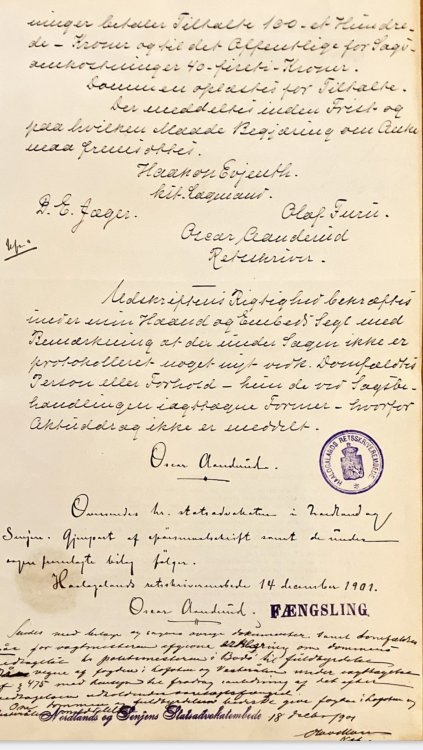 ninger betaler Tiltalte 100 - et Hundre-
de - Kroner og til det Offentlige for Sags-
omkostninger 40 - firti - Kroner.
Dommen oplæstes for Tiltalte.
Der meddeltes inden Frist og
paa hvilken Maade Begjæring om Anke
maa fremsættes.
Haakon Evjenth.
kst. Lagmand.
P. E. Jæger.
Olaf Furu.
Oscar Aanderud
Retsskriver.
Udskriftens Rigtighed bekræftes
under min Haand og Embeds Segl med
Bemærkning at der under Sagen ikke er
protokolleret noget nyt vedk. Domfældtes
Person eller Forhold - kun de ved Sagsbe-
handlingen iagttagne Former - hvorfor
Aktuddrag ikke er meddelt.
Oscar Aanderud.
HAALOGALANDS RETSSKRIVEREMBEDE
Oversendes hr. statsadvokaten i Nordland og
Senjen. Gjenpart af samt de under
bilag følger.
Haalogalands retsskriverembede 14 december 1901.
Oscar Aanderud.
FÆNGSLING.
Sendes med bilage og sagens øvrige dokumenter
erklæring om dommens
politimesteren i Bodø til
og fogden i Lofoten og Vesteraalen
§ 475
Nordlands og Senjens Statsadvokatembede 18 Decbr 1901